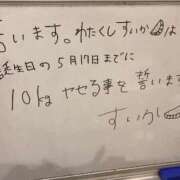 言います。わたくしすいかは
誕生日の5月17日までに
10kg ヤセる事を誓います
すいか